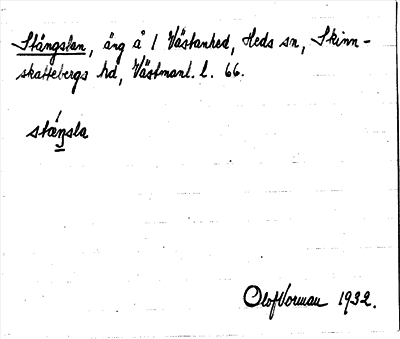 Stängslan, äng å 1 Västanhed, Heds sn, Skinn-
skattebergs hd, Västmanl. l. 66.
stæŋsla
Olof Vorman 1932.